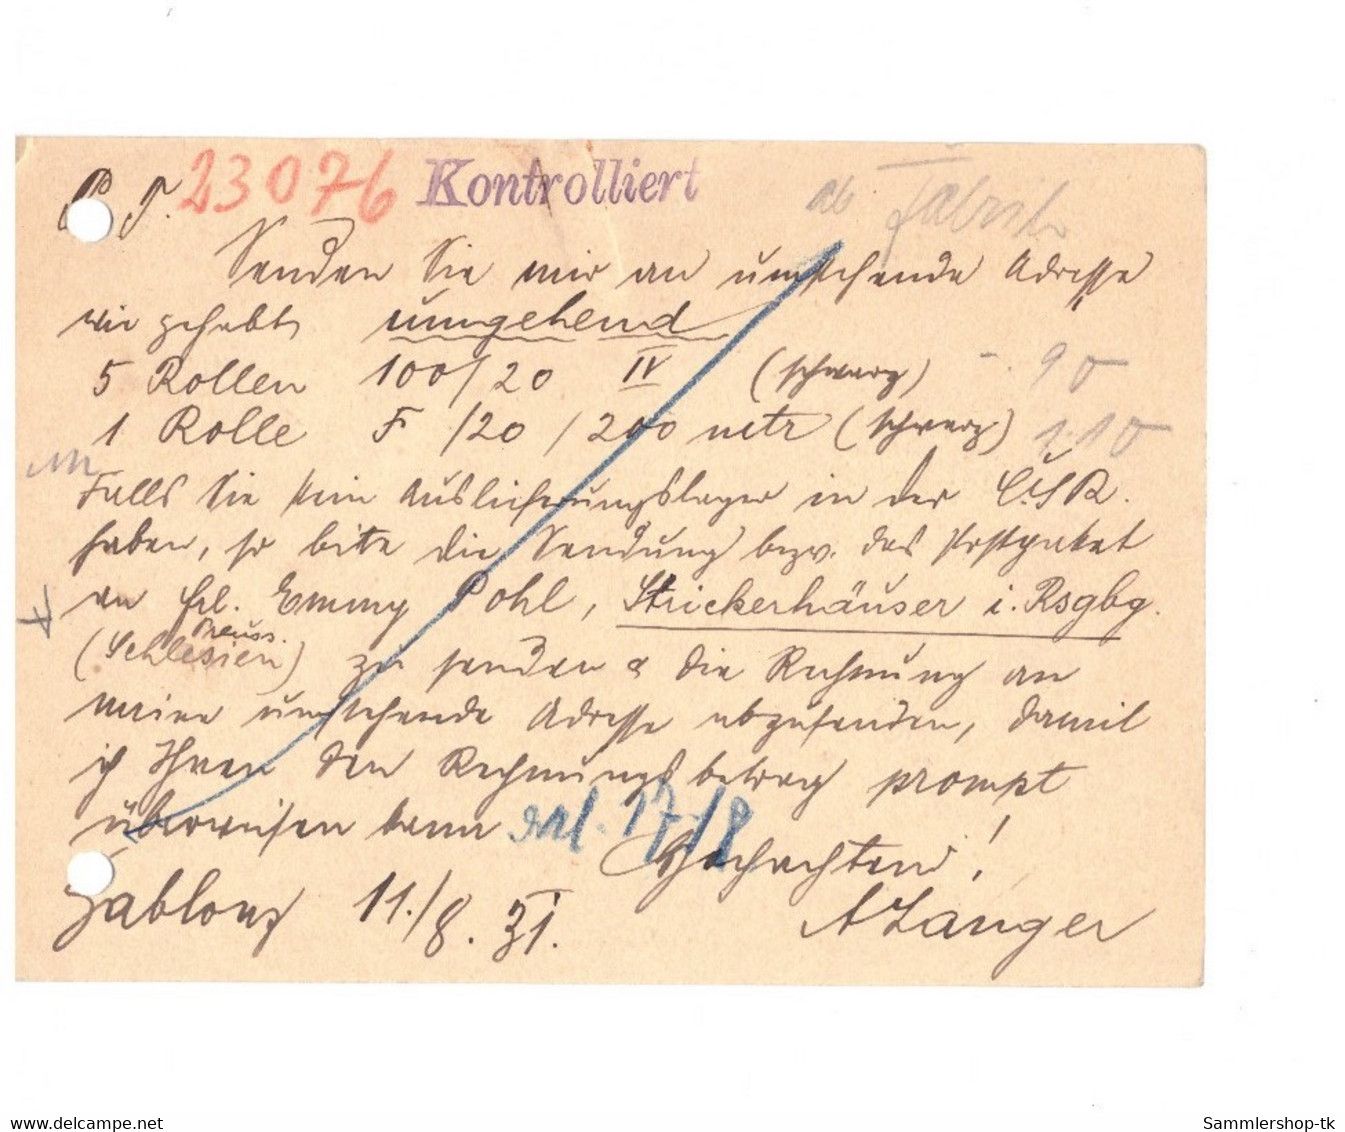 P. T. 23076 Kontrolliert ab Fabrik
Senden Sie mir an umstehende Adresse
wie gehabt umgehend
5 Rollen 100/20 IV (schwarz) -.90
1 Rolle F /20 / 200 metr (schwarz) 1.10
Falls Sie kein Auslieferungslager in der Č.S.R.
haben, so bitte die Sendung bezw. das Postpaket
an Frl. Emmy Pohl, Strickerhäuser i. Rsgbg.
(Preuss. Schlesien) zu senden & die Rechnung an
meine umstehende Adresse abzusenden, damit
ich Ihnen den Rechnungsbetrag prompt
überweisen kann erl. 17/8
Hochachtend!
Gablonz 11./8. 31. A Langer
www.delcampe.net
Sammlershop-tk